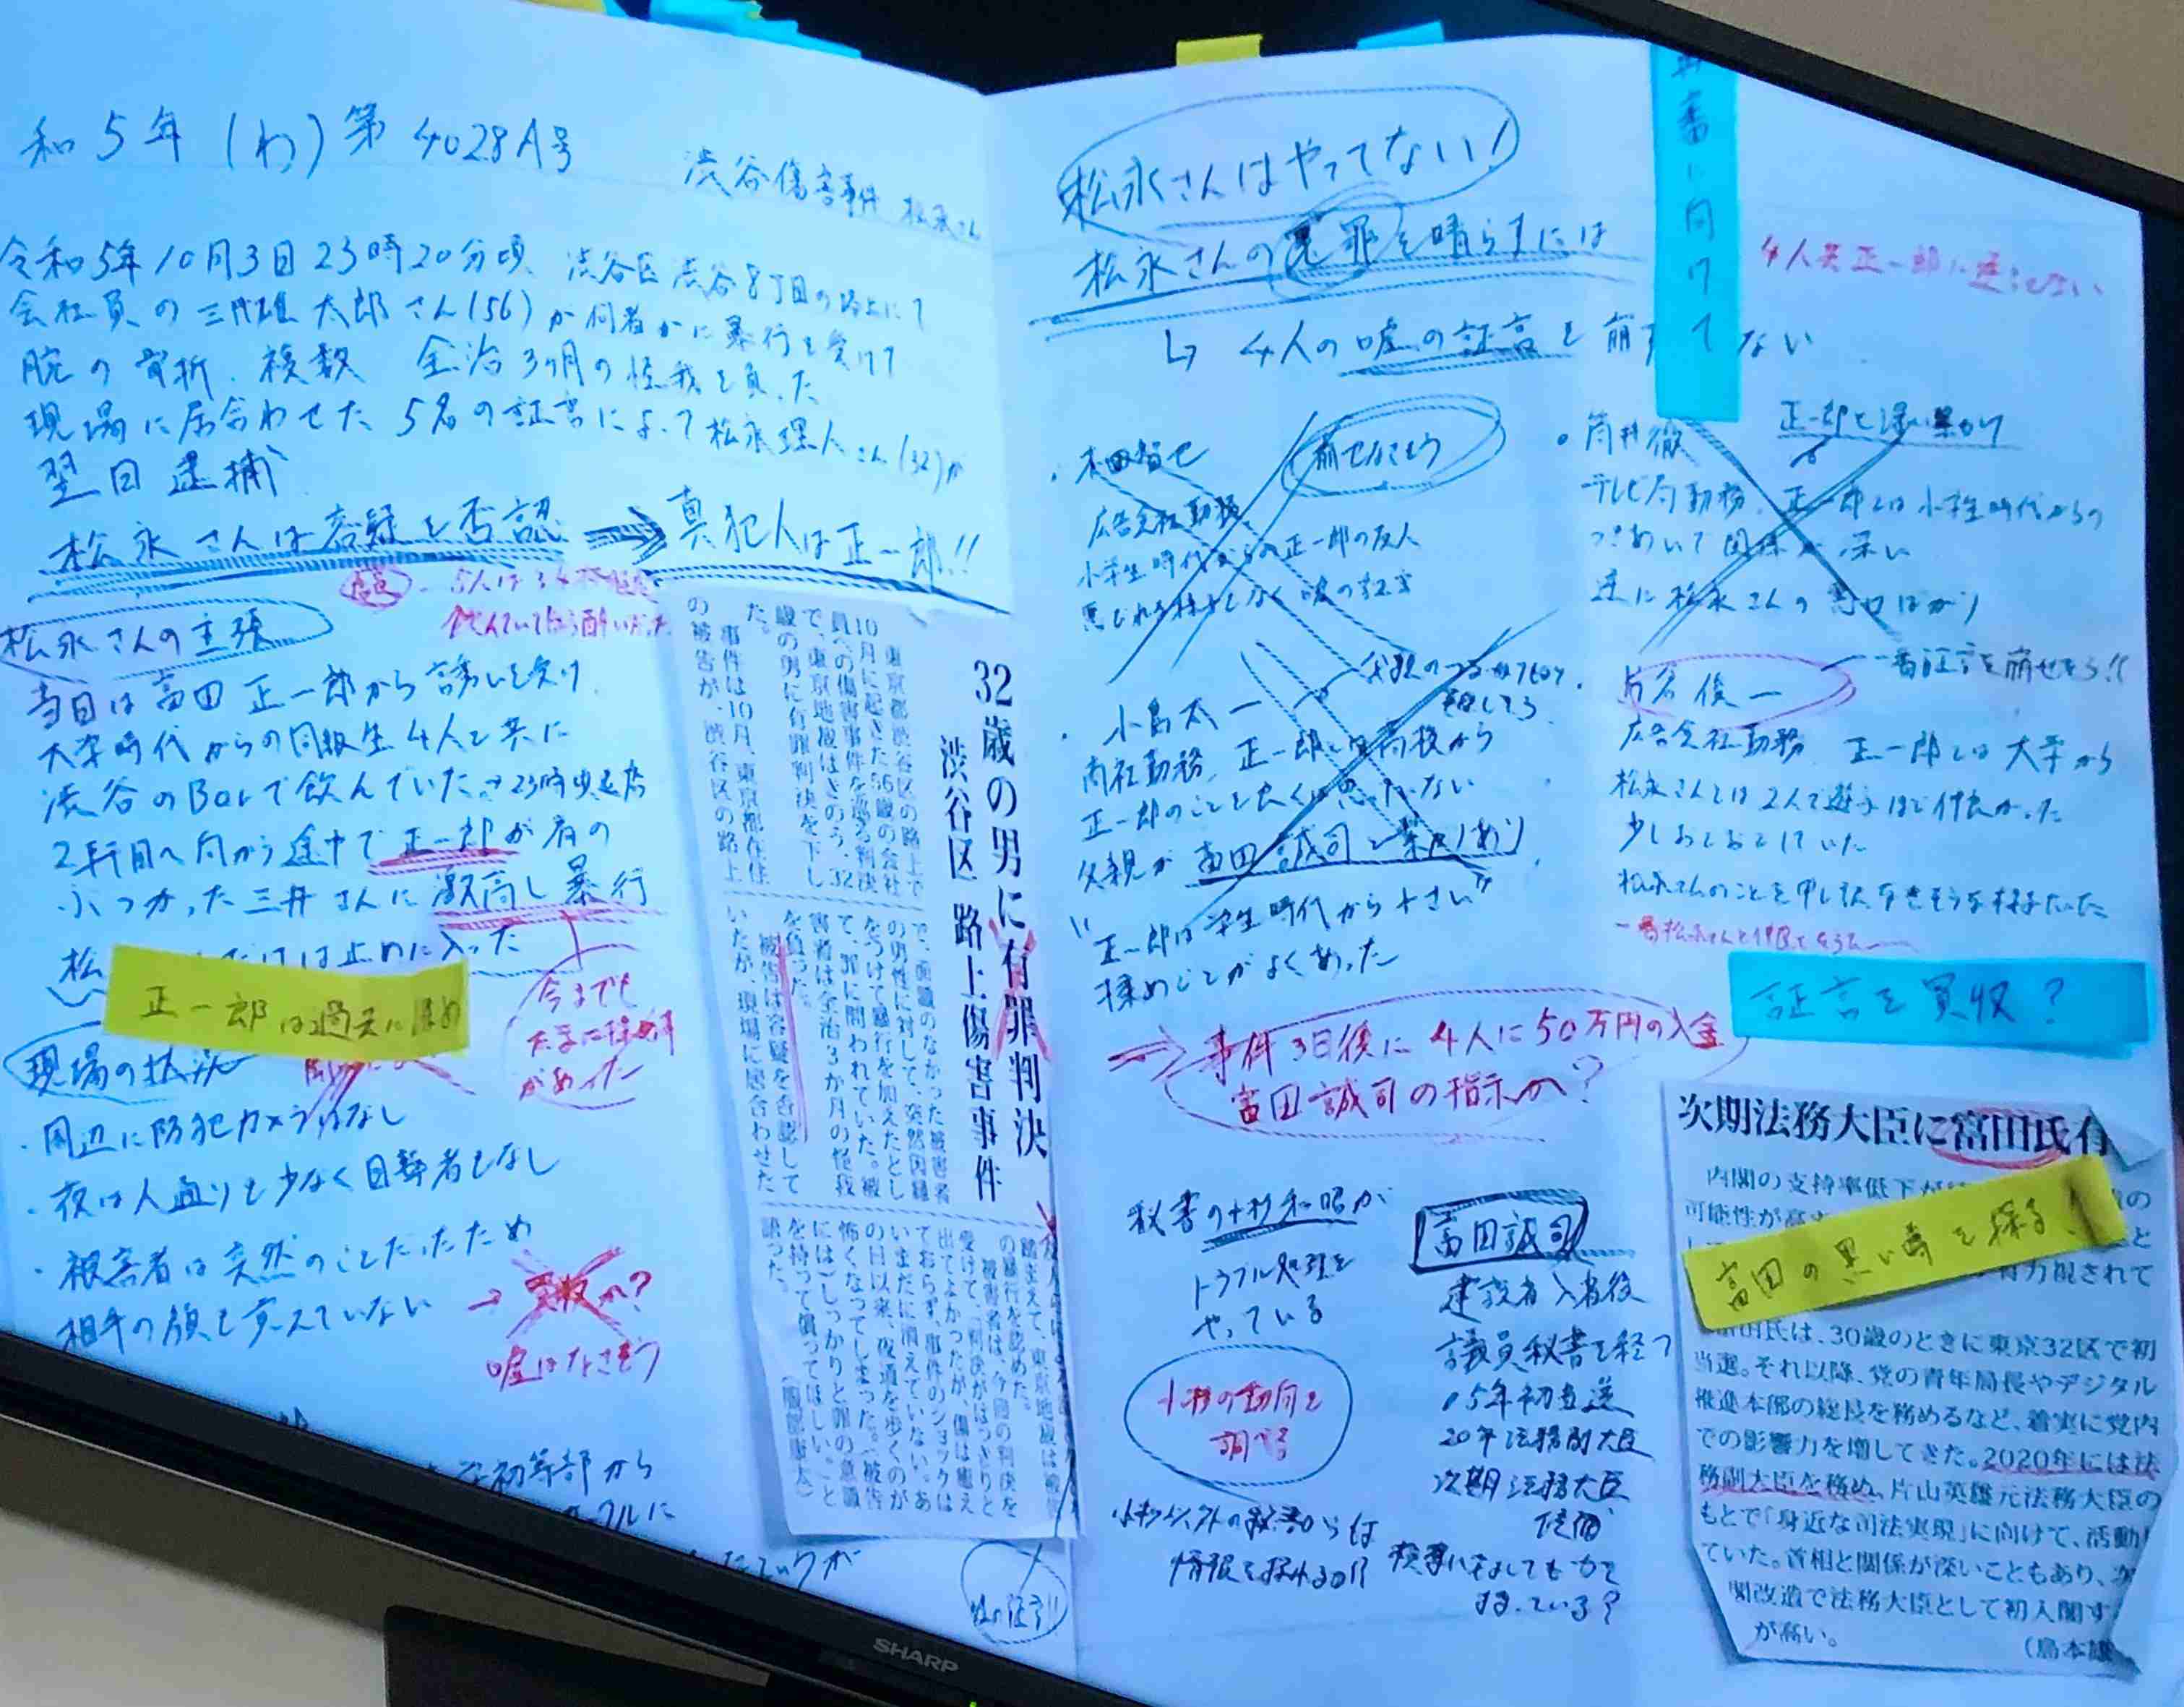 和5年(わ)第4028A号
渋谷傷害事件 松永さん
令和5年10月3日23時20分頃、渋谷区渋谷8丁目の路上にて
会社員の三井雄太郎さん(56)が何者かに暴行を受けて
腕の骨折、複数 全治3ヶ月の怪我を負った
現場に居合わせた5名の証言によって松永理人さん(32)が
翌日逮捕
松永さんは容疑を否認 ⇒ 真犯人は正一郎!!
松永さんの主張
当日は富田正一郎から誘いを受け
大学時代からの同級生4人と共に
渋谷のBarで飲んでいた→23時頃退店
2軒目へ向かう途中で正一郎が肩の
ぶつかった三井さんに激高し暴行
松 は止めに入った
正一郎は過去に
今までも
がめった
現場の状況
・周辺に防犯カメラはなし
・夜は人通りも少なく目撃者もなし
・被害者は突然のことだったため
相手の顔も覚えていない
→ 買収か?
嘘はなさそう
初等部から
32歳の男に有罪判決
渋谷区 路上傷害事件
東京都渋谷区の路上で
10月に起きた56歳の会社
員への傷害事件を巡る判決
で、東京地裁はきのう、32
歳の男に有罪判決を下し
た。
事件は10月、東京都在住
の被告が、渋谷区の路上
で、面識のなかった被害者
の男性に対して、突然因縁
をつけて暴行を加えたとし
て、罪に問われていた。被
害者は全治3か月の怪我
を負った。
被告は容疑を否認して
いたが、現場に居合わせた
踏まえて、東京地裁は被告
の暴行を認めた。
被害者は、今回の判決を
受けて、「判決がはっきりと
出てよかったが、傷は癒え
ておらず、事件のショックは
いまだに消えていない。あ
の日以来、夜道を歩くのが
怖くなってしまった。(被告
には)しっかりと罪の意識
を持って償ってほしい。」と
語った。
松永さんはやってない!
松永さんの冤罪を晴らすには
↳ 4人の嘘の証言を崩す ない
再審に向けて
4人共正一郎に逆らえない
・木田智也
崩せなさそう
広告会社勤務
小学生時代からの正一郎の友人
悪びれる様子もなく嘘の証言
・小島太一
商社勤務、正一郎とは高校から
正一郎のことを良くは思ってない
父親が富田誠司と繋がりあり
“正一郎は学生時代から小さい”
揉めごとがよくあった
・筒井徹
正一郎と深い繋がり
テレビ局勤務、正一郎とは小学生時代からの
つきあいで関係が深い
逆に松永さんの悪口ばかり
・片谷俊一
一番証言を崩せそう!!
広告会社勤務 正一郎とは大学から
松永さんとは2人で遊ぶほど仲良かった
少しおどおどしていた
松永さんのことを申し訳なさそうな様子だった
⇒ 事件3日後に4人に50万円の入金
富田誠司の指示か?
証言を買収?
秘書の小杉和昭が
トラブル処理を
やっている
小杉の動向を
調べる
富田誠司
建設省入省後
議員秘書を経て
05年初当選
20年法務副大臣
次期法務大臣
候補
検事に対しても力を
持っている?
次期法務大臣に富田氏有
内閣の支持率低下が
可能性が高
富田の黒い噂を探る!
有力視されて
富田氏は、30歳のときに東京32区で初
当選。それ以降、党の青年局長やデジタル
推進本部の総長を務めるなど、着実に党内
での影響力を増してきた。2020年には法
務副大臣を務め、片山英雄元法務大臣の
もとで「身近な司法実現」に向けて、活動し
ていた。首相と関係が深いこともあり、次
閣改造で法務大臣として初入閣す
が高い。
SHARP